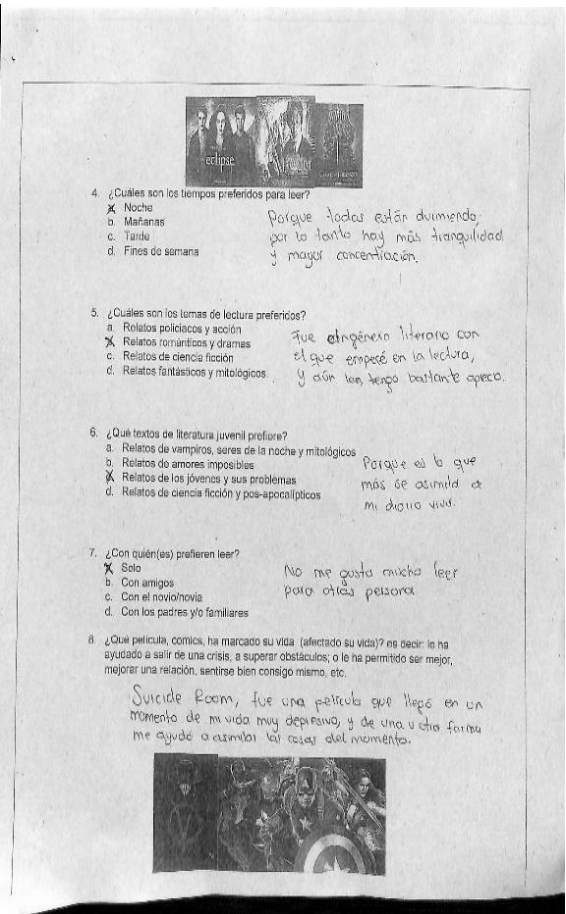 eclipse
4. ¿Cuáles son los tiempos preferidos para leer?
a. Noche
b. Mañanas
c. Tarde
d. Fines de semana
Porque todos están durmiendo,
por lo tanto hay más tranquilidad
y mayor concentración.
5. ¿Cuáles son los temas de lectura preferidos?
a. Relatos policiacos y acción
b. Relatos románticos y dramas
c. Relatos de ciencia ficción
d. Relatos fantásticos y mitológicos
Fue género literario con
el que empecé en la lectura,
y aún tengo bastante aprecio.
6. ¿Qué textos de literatura juvenil prefiere?
a. Relatos de vampiros, seres de la noche y mitológicos
b. Relatos de amores imposibles
c. Relatos de los jóvenes y sus problemas
d. Relatos de ciencia ficción y pos-apocalípticos
Porque es lo que
más se asimila a
mi diario vivir.
7. ¿Con quién(es) prefieren leer?
a. Solo
b. Con amigos
c. Con el novio/novia
d. Con los padres y/o familiares
No me gusta mucho leer
para otras persona
8. ¿Qué película, comics, ha marcado su vida (afectado su vida)? es decir: le ha
ayudado a salir de una crisis, a superar obstáculos; o le ha permitido ser mejor,
mejorar una relación, sentirse bien consigo mismo, etc.
Suicide Room, fue una película que llegó en un
momento de mi vida muy depresivo, y de una u otra forma
me ayudó a asimilar las cosas del momento.